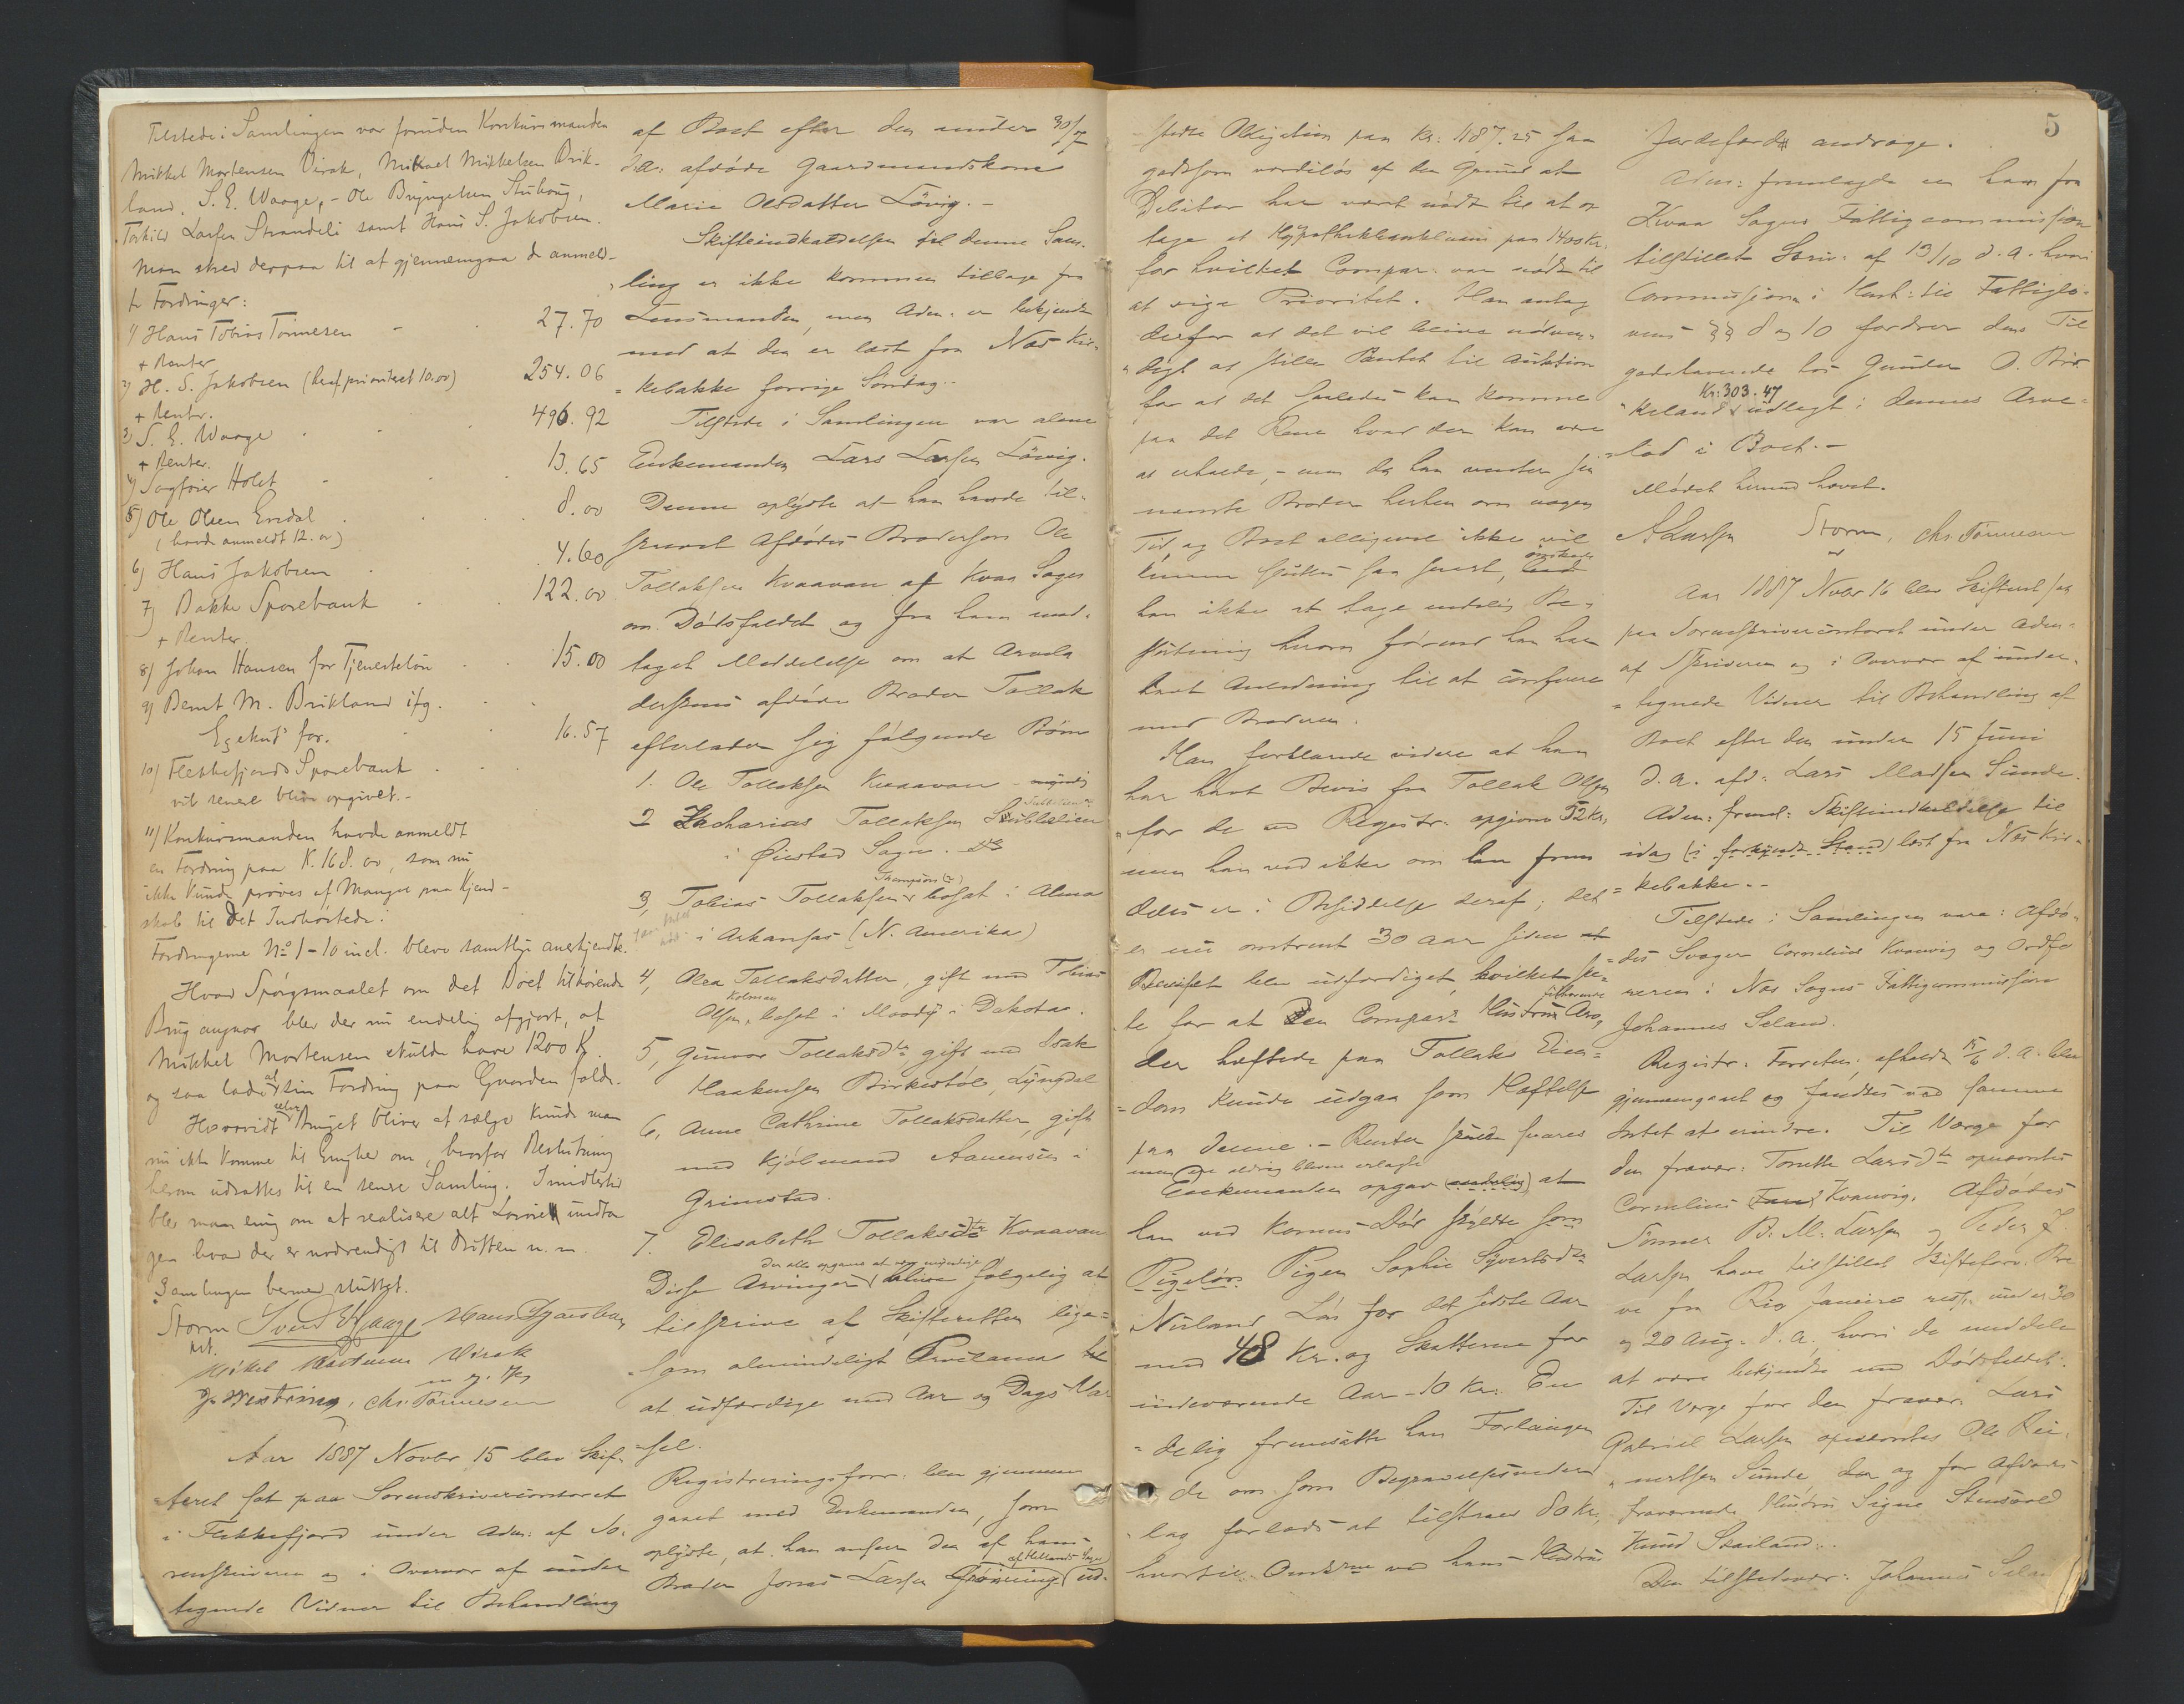 Tilstede i Samlingen var foruden Konkursmanden
Mikkel Mortensen Virak, Mikael Mikkelsen Brik-
land, S. E. Waage, - Ole Bryngelsen Stuhaug,
Torkild Larsen Strandeli samt Hans S. Jakobsen.
Man skred derpaa til at gjennemgaa de anmeld-
te Fordringer:
1) Hans Tobias Tønnesen - 27.70
+ Renter
2) H. S. Jakobsen (heraf prioriteret 10.00) 254.06
+ Renter.
3) S. E. Waage 496.92
+ Renter.
4) Sagfører Holst 13.65
5) Ole Olsen Eredal 8.00
(havde anmeldt 12.00)
6) Hans Jakobsen 4.60
7) Bakke Sparebank 122.00
+ Renter.
8) Johan Hansen for Tjenesteløn 15.00
9) Bernt M. Brikland ifg.
Exekut. for. 16.57
10) Flekkefjords Sparebank
vil senere blive opgivet.-
11) Konkursmanden havde anmeldt
en Fordring paa K. 168.00, som nu
ikke kunde prøves af Mangel paa Kjend-
skab til det Indhøstede.
Fordringerne No 1-10 incl. bleve samtlige anerkjendte.
Hvad Spørgsmaalet om det Boet tilhørende
Brug angaar blev der nu endelig afgjort, at
Mikkel Mortensen skulde have 1200 K.
og saa lade al sin Fordring paa Gaarden falde.
Hvorvidt selve Bruget bliver at sælge kunde man
nu ikke komme til Enighed om, hvorfor Beslutning
herom udsattes til en senere Samling. Imidlertid
blev man enig om at realisere alt Løsøre undta
gen hvad der er nødvendigt til Driften m. m.
Samlingen hermed sluttet.
Storm Sven E Waage Hans S Jacobsen
kst.
Mikel Martinsen Virak
m. p. P.
Chr. Tønnesen
Aar 1887 Novbr 15 blev Skif-
teret sat paa Sorenskrivercontoret
i Flekkefjord under Adm: af So-
renskriveren og i Overvær af under
tegnede Vidner til Behandling
af Boet efter den under 30/7
d. a. afdøde Gaardmandskone
Marie Olsdatter Løvig.-
Skifteindkaldelsen til denne Sam-
ling er ikke kommen tilbage fra
Lensmanden, men Adm. er bekjendt
med at den er læst fra Næs Kir-
kebakke forrige Søndag.-
Tilstede i Samlingen var alene
Enkemanden Lars Larsen Løvig.
Denne oplyste at han havde til-
skrevet Afdødes Brodersøn Ole
Tollaksen Kvaavan af Kvaa Sogn
om Dødsfaldet og fra ham mod-
taget Meddelelse om at Arvela
derskens afdøde Broder Tollak
efterlader sig følgende Børn
1. Ole Tollaksen Kvaavan - myndig
2 Zacharias Tollaksen
i Øiestad Sogn.
Thompson (?)
3, Tobias Tollaksen bosat i Alma
i Arkansas (N. Amerika)
4, Olea Tollaksdatter, gift med Tobias
Kolman
Olsen, bosat i Moody i Dakota.
5, Gunvor Tollaksdtr gift med Isak
Haakensen Birkestøl, Lyngdal
6, Anne Cathrine Tollaksdatter, gift
med Kjøbmand Aanensen i
Grimstad.
7. Elisabeth Tollaksdtr Kvaavan
der alle opgaves at være myndige
Disse Arvinger bliver følgelig at
tilskrive af Skifteretten lige-
som almindeligt Proclama bl
at udfærdige med Aar og Dags Var-
sel.
Registreringsforr: blev gjennem
gaaet med Enkemanden, som
oplyste, at han anser den af hans
af Hitterø Sogn
Broder Jonas Larsen ud-
stedte Obligation paa Kr: 1187.25 saa
godtsom værdiløs af den Grund at
Debitor har været nødt til at op
tage et Hypothekbanklaan paa 1400 Kr,
for hvilket Compar. var nødt til
at vige Prioritet. Han antog
derfor at det vil blive nødven-
digt at stille Pantet til Auktion
for at det saaledes kan komme
paa det Rene hvad der kan være
at erholde, - men da han venter sin
nævnte Broder herhen om nogen
Tid, og Boet alligevel ikke vil
kunne sluttes saa snart, ønskede
han ikke at tage endelig Be-
slutning herom førend han har
havt Anledning til at conferere
med Broderen.
Han forklarede videre at han
har havt Bevis fra Tollak Olsen
for de ved Registr. opgivne 52 Kr,
men han ved ikke om han frem
deles er i Besiddelse deraf; det
er nu omtrent 30 Aar siden
Beviset blev udfærdiget, hvilket ske-
te for at den Compar: Hustru tilkommende Arv,
der heftede paa Tollaks Eien-
dom kunde udgaa som Heftelse
paa denne. - Renter skulde svares
men ere aldrig blevne erlagte
Enkemanden opgav at
han ved Konens Død skyldte som
Pigeløn Pigen Sophie Syvertsdtr
Nuland Løn for det sidste Aar
med 48 Kr. og Skatterne for
indeværende Aar - 10 Kr: En
delig fremsatte han Forlangen
de om som Begravelsesveder
lag forlods at tilstaaes 80 Kr,
hvortil Omk:rne ved hans Hustrus
5
Jordefærd androge.
Adm: fremlagde en ham fra
Kvaa Sogns Fattigcommission
tilstillet Skriv: af 13/10 d. a. hvori
Commissionen i Henh: til Fattiglo-
vens §§ 8 og 10 fordrer dens Til
godehavende hos Gunder O. Bir-
Kr: 303.47
keland udlagt i dennes Arve-
lod i Boet.-
Mødet hermed hævet.
Storm, Chr. Tønnesen
Aar 1887 Novbr 16 blev Skifteret sat
paa Sorenskrivercontoret under Adm:
af Skriveren og i Overvær af under-
tegnede Vidner til Behandling af
Boet efter den under 15 Juni
d. a. afd: Lars Madsen Sunde.
Adm: freml: Skifteindkaldelse til
idag (i forkyndt Stand) læst fra Næs Kir-
kebakke.-
Tilstede i Samlingen vare: Afdø-
des Svoger Cornelius Kvanvig og Ordfø
reren i Næs Sogns Fattigcommission
Johannes Seland.
Registr: Forretn: afholdt 15/6 d. a. blev
gjennemgaaet og fandtes ved samme
Intet at erindre. Til Værge for
den fravær: Tonette Larsdtr opnævntes
Cornelius Kvanvig. Afdødes
Sønner B. M. Larsen og Peder J.
Larsen have tilstillet Skifteforv. Bre
ve fra Rio Janeiro resp. under 30
og 20 Aug. d. a. hvori de meddele
at være bekjendte med Dødsfaldet.
Til Værge for den fravær. Lars
Gabriel Larsen opnævntes Ole Rei-
nertsen Sunde, der og for Afdødes
fraværende Hustru Signe
Knud Stailand.
Den tilstedevær: Johannes Selan